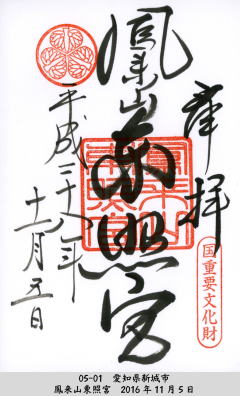 奉拝
国重要文化財
鳳来山東照宮
平成二十八年
十一月五日
05-01 愛知県新城市
鳳来山東照宮 2016年11月5日